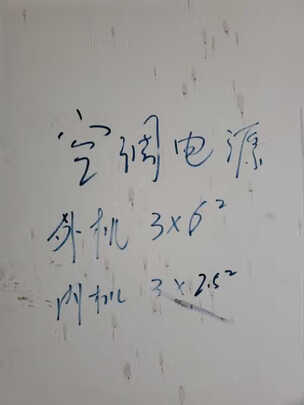 空调电源
外机 3×6²
内机 3×2.5²